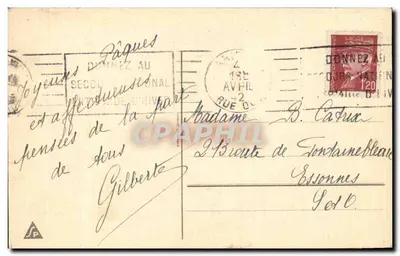 Joyeuses Pâques
et affectueuses
pensées de la part
de tous
Gilberte
DONNEZ AU
SECOURS NATIONAL
AVRIL
RUE DU
DONNEZ AU
1F20
Madame B. Catrix
2 Bd route de Fontainebleau
Essonnes
S et O
CPARAMA
SP